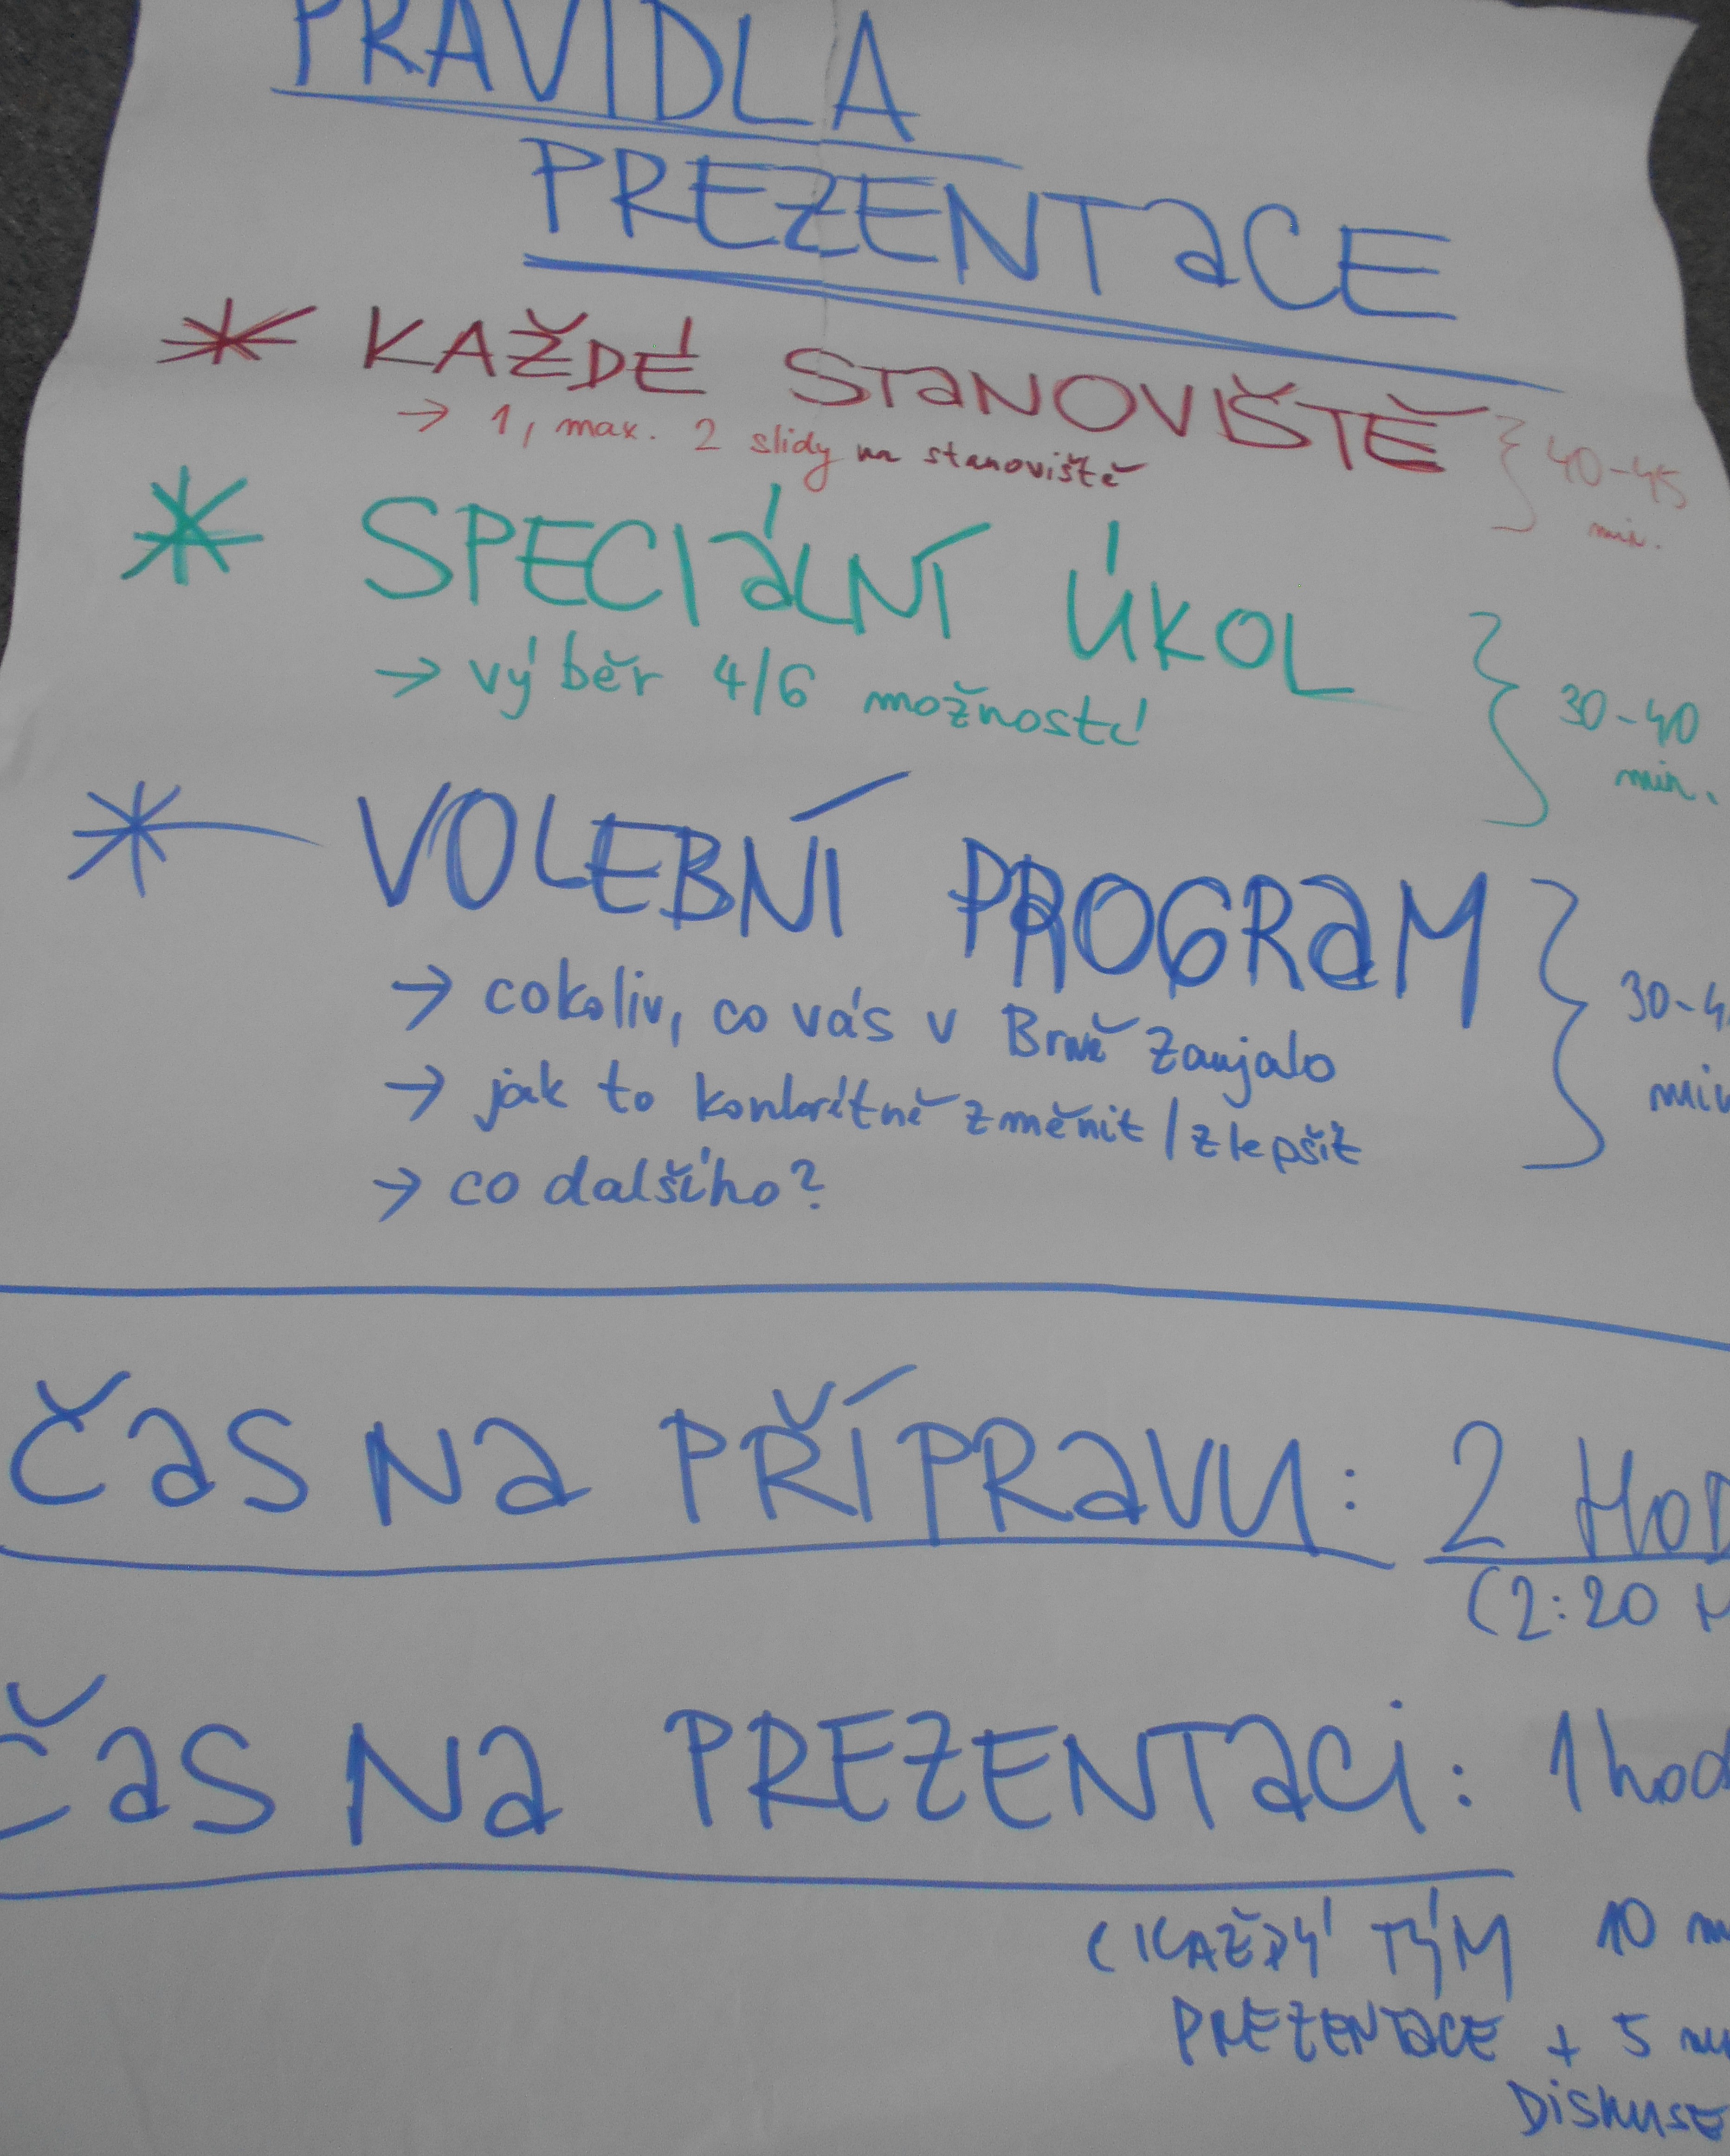 PRAVIDLA
PREZENTACE
* KAŽDÉ STANOVIŠTĚ
→ 1, max. 2 slidy na stanoviště
40-45
min.
* SPECIÁLNÍ ÚKOL
→ výběr 4/6 možností
30-40
min.
* VOLEBNÍ PROGRAM
→ cokoliv, co vás v Brně zaujalo
→ jak to konkrétně změnit/zlepšit
→ co dalšího?
30-4
min
ČAS NA PŘÍPRAVU: 2 HOD
(2:20 H
ČAS NA PREZENTACI: 1 hod
(KAŽDÝ TÝM 10 m
PREZENTACE + 5 mi
DISKUSE